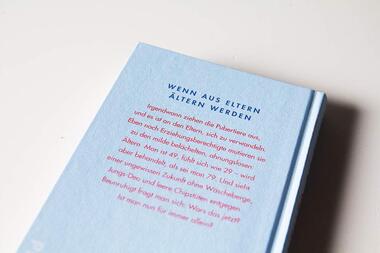 WENN AUS ELTERN
ÄLTERN WERDEN
Irgendwann ziehen die Pubertiere aus,
und es ist an den Eltern, sich zu verwandeln.
Eben noch Erziehungsberechtigte mutieren sie
zu den milde belächelten, ahnungslosen
Ältern. Man ist 49, fühlt sich wie 29 – wird
aber behandelt, als sei man 79. Und sieht
einer ungewissen Zukunft ohne Wäscheberge,
Jungs-Deo und leere Chipstüten entgegen.
Beunruhigt fragt man sich: Wars das jetzt?
Ist man nun für immer allein?